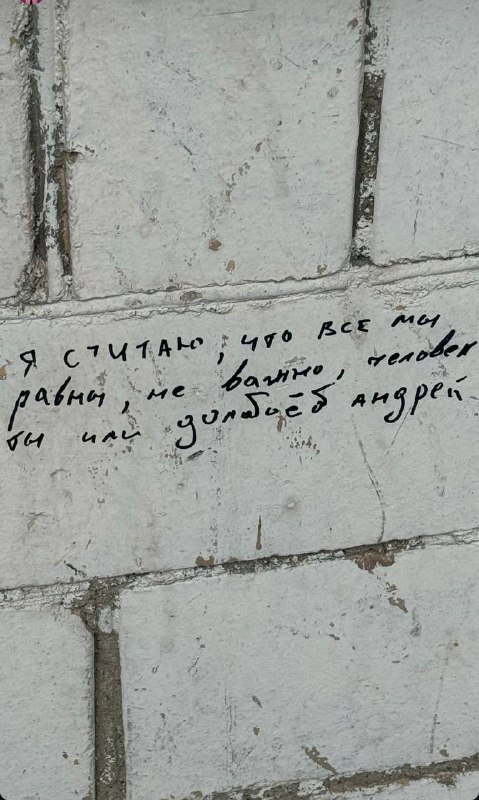 Я СЧИТАЮ, что ВСЕ мы
равны, не важно, человек
ты или долбоёб андрей